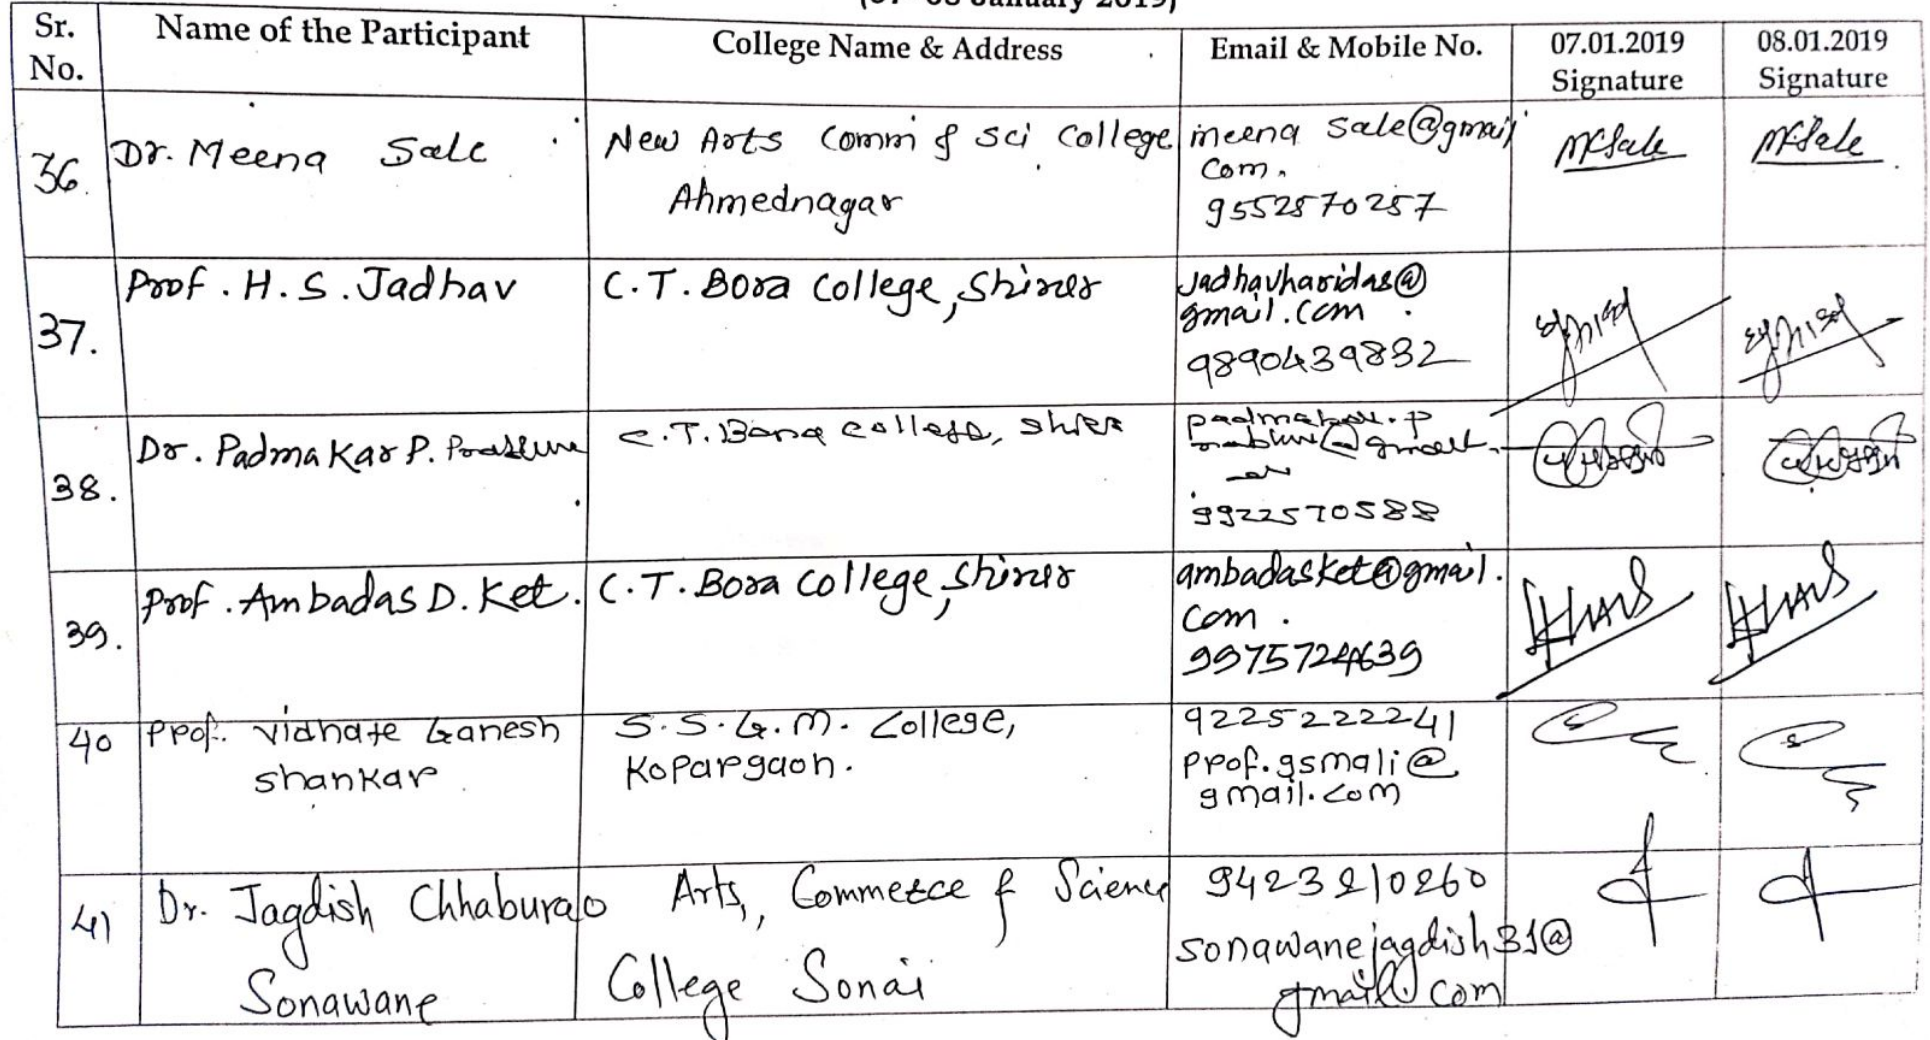 January 2019)
Sr. No. Name of the Participant College Name & Address Email & Mobile No. 07.01.2019 Signature 08.01.2019 Signature
36. Dr. Meena Sale New Arts Comm & Sci College Ahmednagar meena sale@gmail com. 9552570257
37. Prof. H.S. Jadhav C.T. Bora College, Shirur jadhavharidas@ gmail.com 9890439832
38. Dr. Padmakar P. C.T. Bora College, 9922570588
39. Prof. Ambadas D. Ket. C.T. Bora College, Shirur ambadasket@gmail. com. 9975724639
40 Prof. Vidhate Ganesh Shankar S.S.G.M. College, Kopargaon. 9225222241 prof.gsmali@ gmail.com
41 Dr. Jagdish Chhaburao Sonawane Arts, Commerce & Science College Sonai 9423210260 sonawanejagdish31@ gmail.com